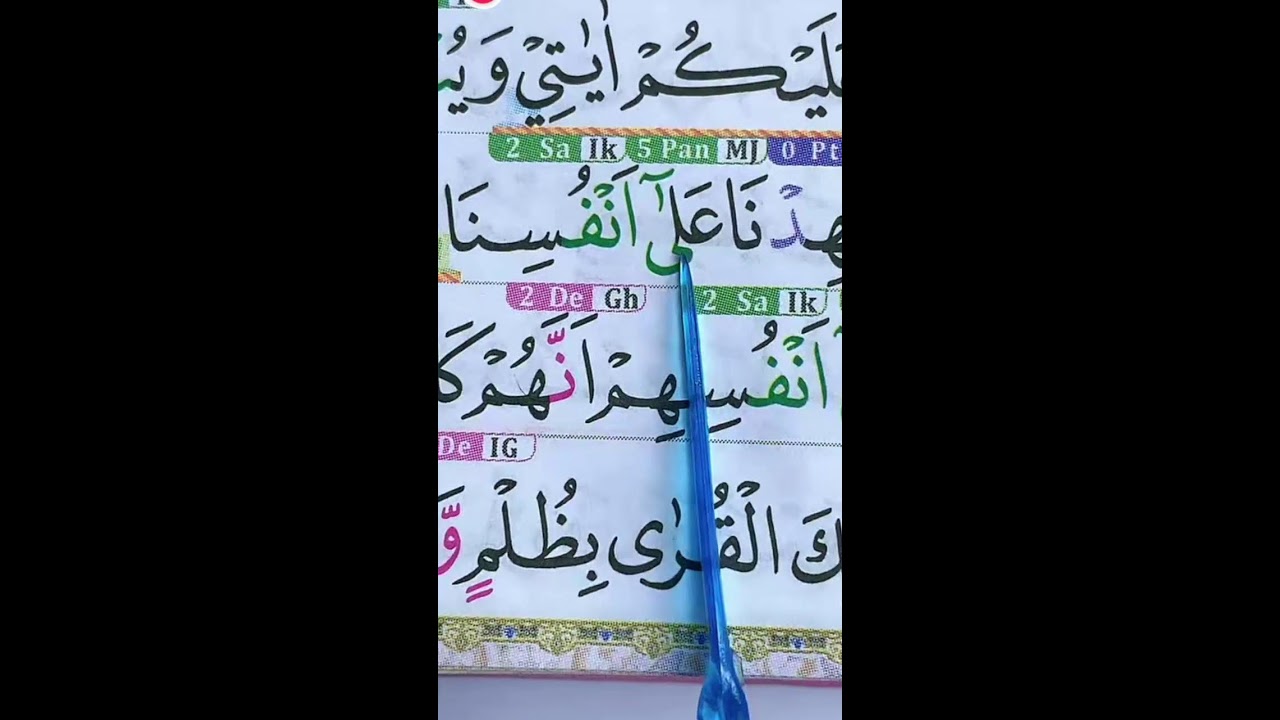 عَلَيْكُمْ اٰيٰتِيْ وَيُ
2 Sa Ik 5 Pan MJ 0 Pt
هِدْنَا عَلٰٓى اَنْفُسِنَا
2 De Gh 2 Sa Ik
اَنْفُسِهِمْ اَنَّهُمْ كَ
De IG
كَ الْقُرٰى بِظُلْمٍ وَّ